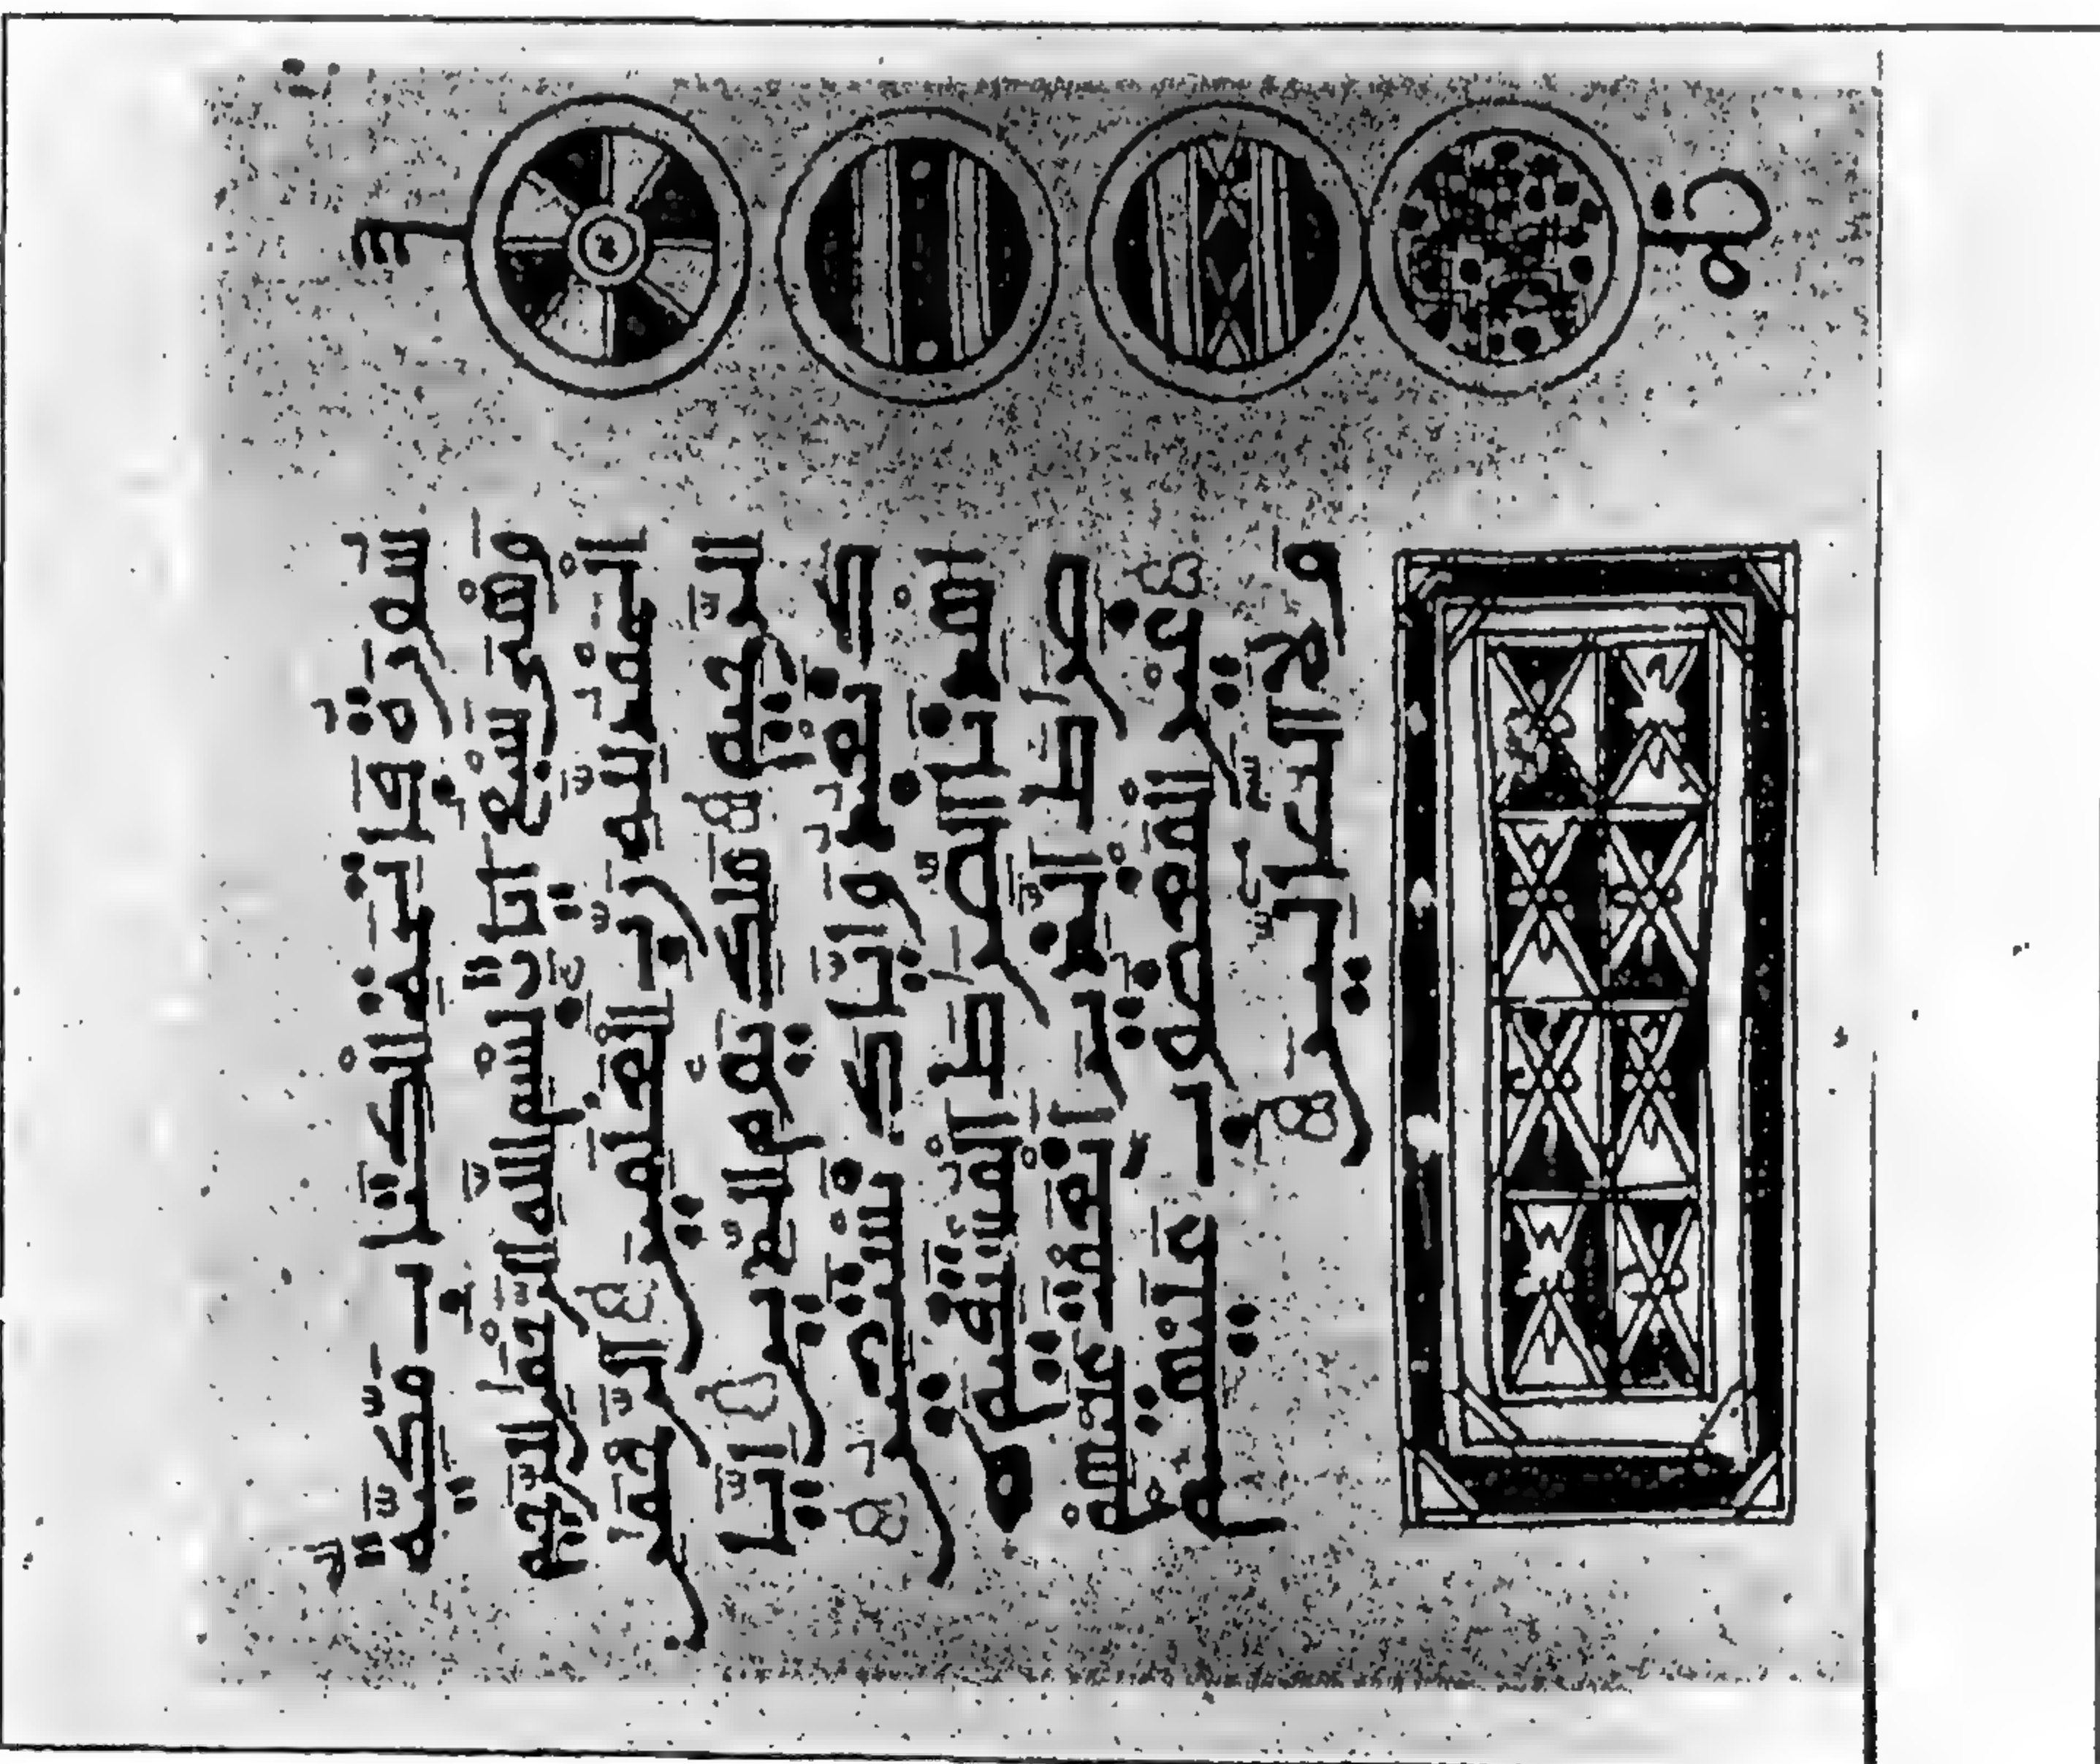 سورة فاتحة الكتاب مكية
وهي سبع ايات بسم الله الرحمن الرحيم
الحمد لله رب العلمين الرحمن
الرحيم ملك يوم الدين ايا
ك نعبد واياك نستعين
اهدنا الصرط المستقيم
صرط الذين انعمت عليهم
غير المغضوب عليهم
ولا الضالين